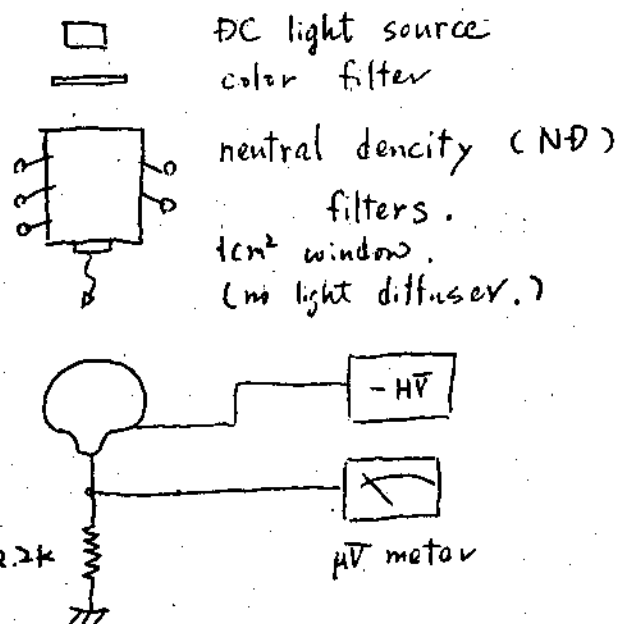 DC light source
color filter
neutral dencity (ND)
filters.
1cm² window.
(no light diffuser.)
-HV
2.2k
μV meter